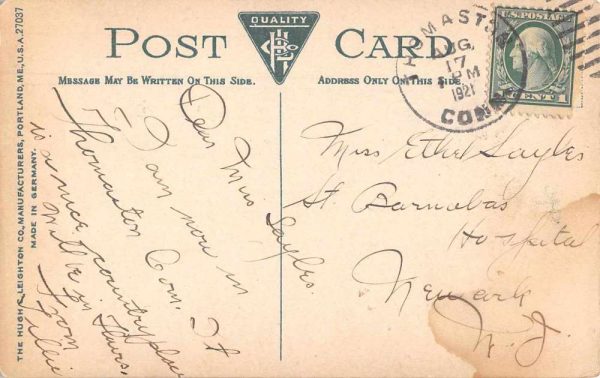 QUALITY
POST CARD
MESSAGE MAY BE WRITTEN ON THIS SIDE.
ADDRESS ONLY ON THIS SIDE
THE HUGH C. LEIGHTON CO., MANUFACTURERS, PORTLAND, ME., U.S.A. 27037
MADE IN GERMANY.
THOMASTON
AUG
17
PM
1921
CONN
U.S. POSTAGE
1 CENT 1
Dear Miss Sayles.
I am now in
Thomaston Conn. It
is a nice country place
Will be in Thurs,
From
Tillie
Miss Ethel Sayles
St. Barnabas
Hospital
Newark
N. J.